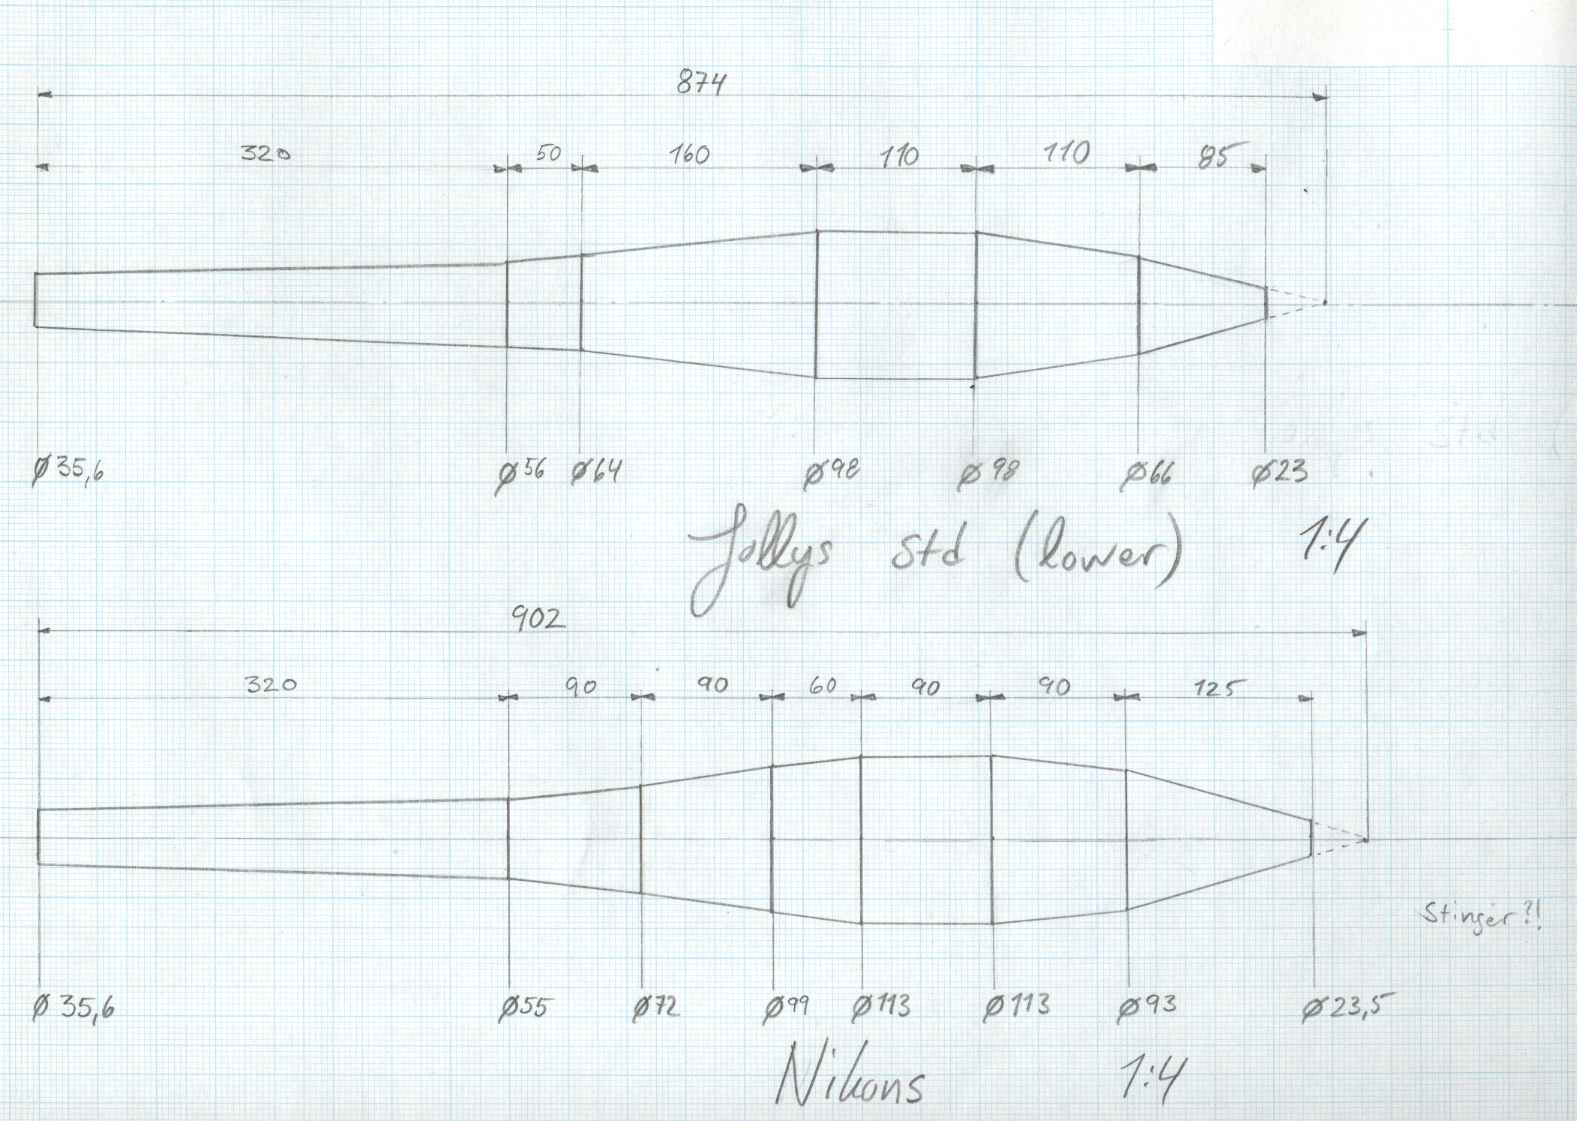 874
320 50 160 110 110 85
Ø35,6 Ø56 Ø64 Ø98 Ø98 Ø66 Ø23
Jollys std (lower) 1:4
902
320 90 90 60 90 90 125
Stinger?!
Ø35,6 Ø55 Ø72 Ø99 Ø113 Ø113 Ø93 Ø23,5
Nikons 1:4